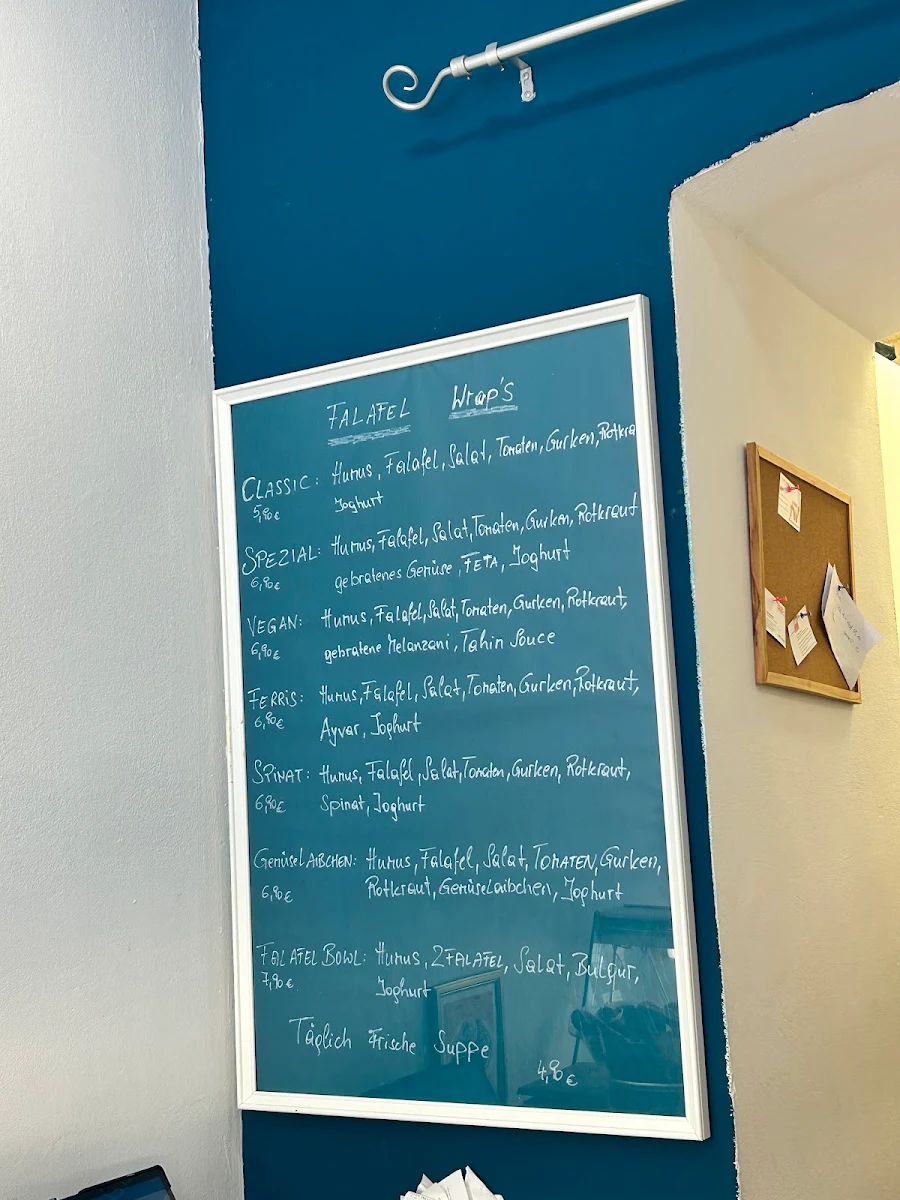 FALAFEL Wrap's
CLASSIC: Humus, Falafel, Salat, Tomaten, Gurken, Rotkra
5,90€ Joghurt
SPEZIAL: Humus, Falafel, Salat, Tomaten, Gurken, Rotkraut
6,90€ gebratenes Gemüse, FETA, Joghurt
VEGAN: Humus, Falafel, Salat, Tomaten, Gurken, Rotkraut,
6,90€ gebratene Melanzani, Tahin Souce
FERRIS: Humus, Falafel, Salat, Tomaten, Gurken, Rotkraut,
6,90€ Ayvar, Joghurt
SPINAT: Humus, Falafel, Salat, Tomaten, Gurken, Rotkraut,
6,90€ Spinat, Joghurt
GemüseLAIBCHEN: Humus, Falafel, Salat, TOMATEN, Gurken,
6,90€ Rotkraut, Gemüselaibchen, Joghurt
FALAFEL BOWL: Humus, 2FALAFEL, Salat, Bulgur,
7,90€ Joghurt
Täglich Frische Suppe
4,90€